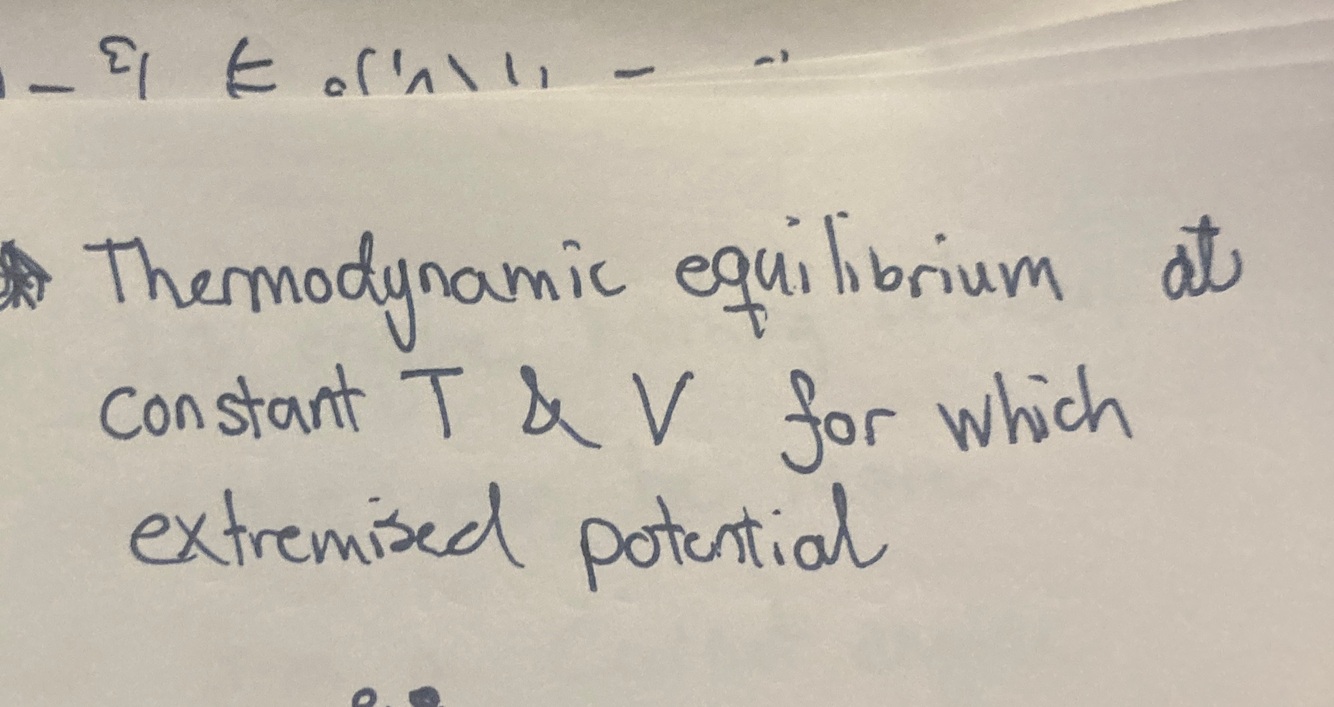 Thermodynamic equilibrium at
constant T & V for which
extremised potential